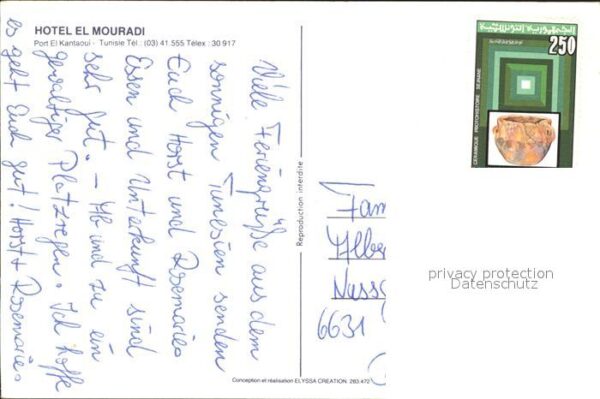 HOTEL EL MOURADI
Port El Kantaoui - Tunisie Tél.: (03) 41 555 Télex : 30 917
Viele Feriengrüße aus dem
sonnigen Tunesien senden
Euch Horst und Rosemarie.
Essen und Unterkunft sind
sehr gut. – Ab und zu ein
gewaltiger Platzregen. Ich hoffe
es geht Euch gut! Horst + Rosemarie.
Reproduction interdite
Conception et réalisation ELYSSA CREATION 283.472
الجمهورية التونسية
250
CERAMIQUE PROTOHISTOIRE SEJNANE
Fam
Albe
Nass
6631
privacy protection
Datenschutz